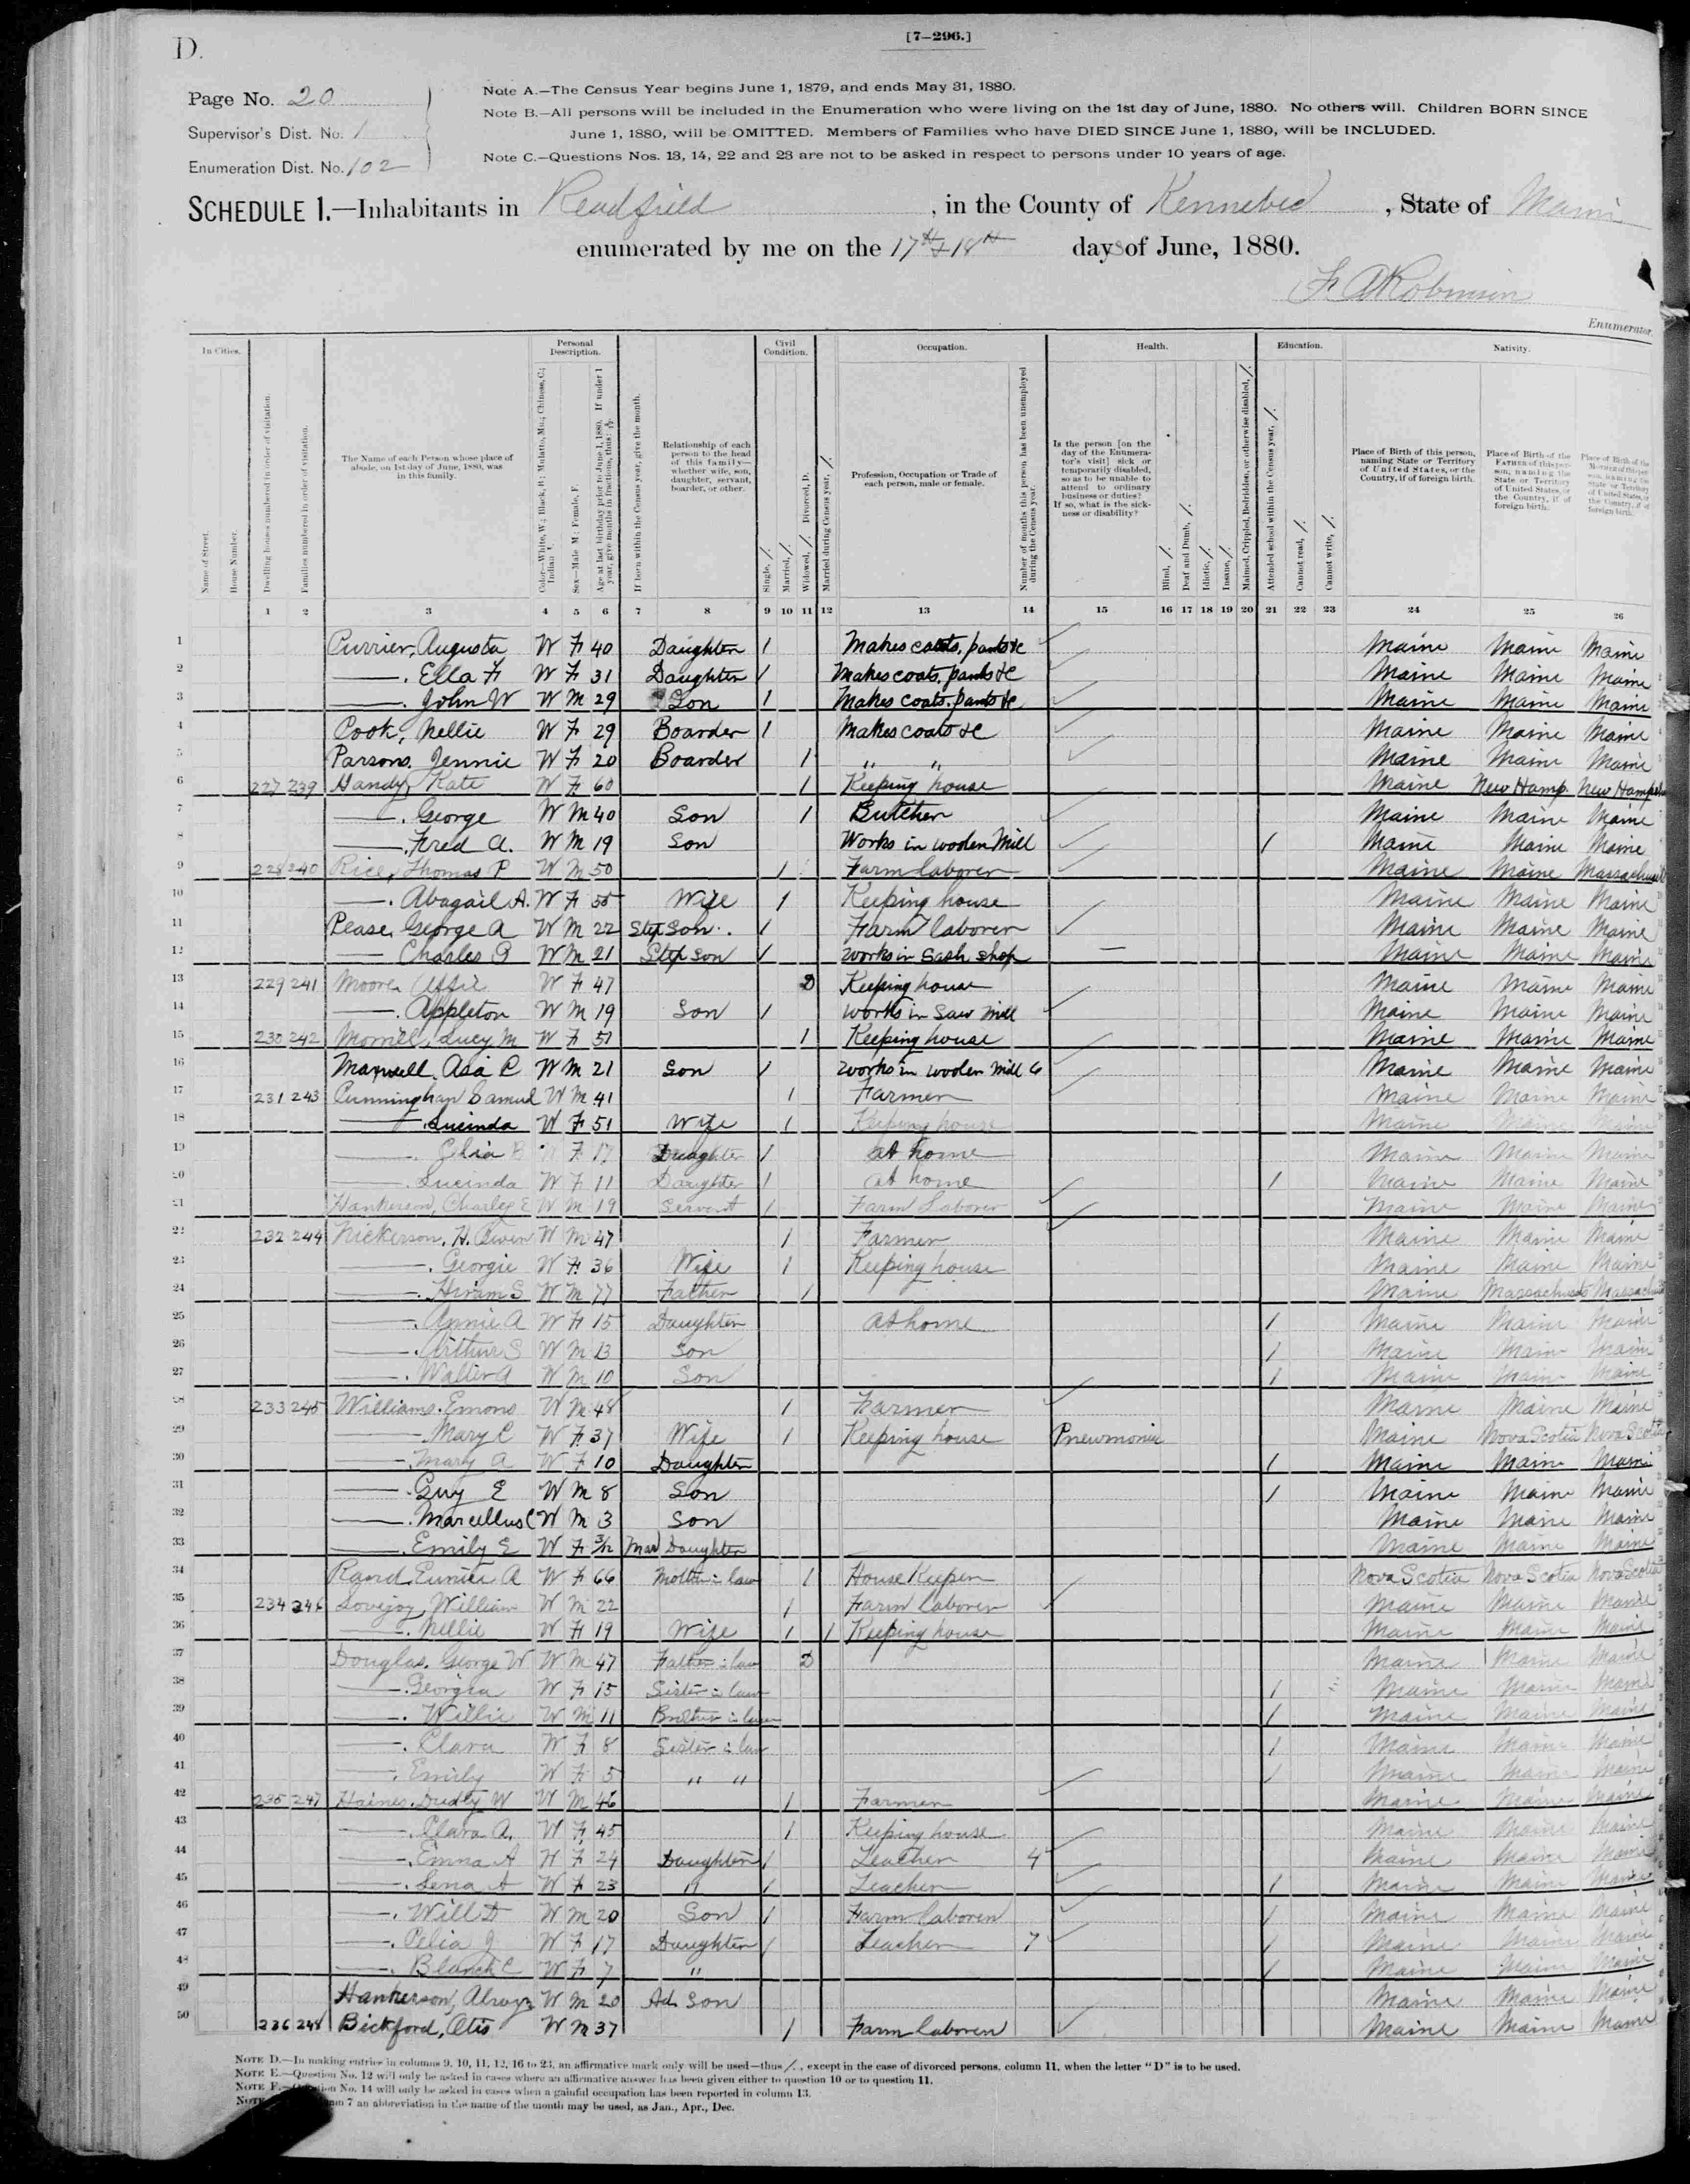 D.
[7–296.]
Page No. 20
Supervisor's Dist. No. 1
Enumeration Dist. No. 102
Note A.—The Census Year begins June 1, 1879, and ends May 31, 1880.
Note B.—All persons will be included in the Enumeration who were living on the 1st day of June, 1880. No others will. Children BORN SINCE
June 1, 1880, will be OMITTED. Members of Families who have DIED SINCE June 1, 1880, will be INCLUDED.
Note C.—Questions Nos. 13, 14, 22 and 23 are not to be asked in respect to persons under 10 years of age.
SCHEDULE 1.—Inhabitants in Readfield, in the County of Kennebec, State of Maine
enumerated by me on the 17th & 18th days of June, 1880.
F A Robinson
Enumerator.
In Cities. Personal Description. Civil Condition. Occupation. Health. Education. Nativity.
Name of Street.
House Number.
Dwelling houses numbered in order of visitation.
Families numbered in order of visitation.
The Name of each Person whose place of abode, on 1st day of June, 1880, was in this family.
Color—White, W.; Black, B.; Mulatto, Mu.; Chinese, C.; Indian, I.
Sex—Male M; Female, F.
Age at last birthday prior to June 1, 1880. If under 1 year, give months in fractions, thus: 3/12
If born within the Census year, give the month.
Relationship of each person to the head of this family—whether wife, son, daughter, servant, boarder, or other.
Single, /.
Married, /.
Widowed, /. Divorced, D.
Married during Census year, /.
Profession, Occupation or Trade of each person, male or female.
Number of months this person has been unemployed during the Census year.
Is the person [on the day of the Enumerator's visit] sick or temporarily disabled, so as to be unable to attend to ordinary business or duties? If so, what is the sickness or disability?
Blind, /.
Deaf and Dumb, /.
Idiotic, /.
Insane, /.
Maimed, Crippled, Bedridden, or otherwise disabled, /.
Attended school within the Census year, /.
Cannot read, /.
Cannot write, /.
Place of Birth of this person, naming State or Territory of United States, or the Country, if of foreign birth.
Place of Birth of the FATHER of this person, naming the State or Territory of United States, or the Country, if of foreign birth.
Place of Birth of the MOTHER of this person, naming the State or Territory of United States, or the Country, if of foreign birth.
1 2 3 4 5 6 7 8 9 10 11 12 13 14 15 16 17 18 19 20 21 22 23 24 25 26
1 Currier, Augusta W F 40 Daughter / Makes coats, pants &c Maine Maine Maine
2 —. Ella F W F 31 Daughter / Makes coats, pants &c Maine Maine Maine
3 —. John W W M 29 Son / Makes coats, pants &c Maine Maine Maine
4 Cook, Nellie W F 29 Boarder / Makes coats &c Maine Maine Maine
5 Parsons, Jennie W F 20 Boarder / " " Maine Maine Maine
6 227 239 Handy, Kate W F 60 / Keeping house Maine New Hamp New Hampshire
7 —. George W M 40 Son / Butcher Maine Maine Maine
8 —. Fred A. W M 19 Son Works in woolen Mill / Maine Maine Maine
9 228 240 Rice, Thomas P W M 50 / Farm laborer Maine Maine Massachusetts
10 —. Abagail A. W F 55 Wife / Keeping house Maine Maine Maine
11 Pease, George A W M 22 Step son / Farm laborer Maine Maine Maine
12 — Charles B W M 21 Step son / works in Sash shop Maine Maine Maine
13 229 241 Moore, Affie W F 47 D Keeping house Maine Maine Maine
14 —. Appleton W M 19 Son / works in Saw Mill Maine Maine Maine
15 230 242 Morrill, Lucy M W F 51 / Keeping house Maine Maine Maine
16 Maxwell, Asa C W M 21 Son / works in woolen Mill 6 Maine Maine Maine
17 231 243 Cunningham Samuel W M 41 / Farmer Maine Maine Maine
18 —. Lucinda W F 51 Wife / Keeping house Maine Maine Maine
19 —. F 17 Daughter / at home Maine Maine Maine
20 —. Lucinda W F 11 Daughter / at home / Maine Maine Maine
21 Hankerson, Charles E W M 19 Servant / Farm Laborer Maine Maine Maine
22 232 244 Nickerson, H. Owen W M 47 / Farmer Maine Maine Maine
23 —. Georgie W F 36 Wife / Keeping house Maine Maine Maine
24 —. Hiram S W M 77 Father / Maine Massachusetts Massachusetts
25 —. Annie A W F 15 Daughter At home / Maine Maine Maine
26 —. Arthur S W M 13 Son / Maine Maine Maine
27 —. Walter A W M 10 Son / Maine Maine Maine
28 233 245 Williams, Emons W M 48 / Farmer Maine Maine Maine
29 —. Mary C W F 37 Wife / Keeping house Pneumonia Maine Nova Scotia Nova Scotia
30 —. Mary A W F 10 Daughter / Maine Maine Maine
31 —. Guy E W M 8 Son / Maine Maine Maine
32 —. Marcellus C W M 3 Son Maine Maine Maine
33 —. Emily E W F 3/12 Mar Daughter Maine Maine Maine
34 Rand, Eunice A W F 66 Mother in law / House Keeper Nova Scotia Nova Scotia Nova Scotia
35 234 246 Lovejoy, William W M 22 / Farm Laborer Maine Maine Maine
36 —. Nellie W F 19 Wife / / Keeping house Maine Maine Maine
37 Douglas, George W W M 47 Father in law D Maine Maine Maine
38 —. Georgia W F 15 Sister in law / Maine Maine Maine
39 —. Willie W M 11 Brother in law / Maine Maine Maine
40 —. Clara W F 8 Sister in law / Maine Maine Maine
41 —. Emily W F 5 " " / Maine Maine Maine
42 235 247 Haines, Dudley W W M 46 / Farmer Maine Maine Maine
43 —. Clara A. W F 45 / Keeping house Maine Maine Maine
44 —. Emma A W F 24 Daughter / Teacher 4 Maine Maine Maine
45 —. Lena A W F 23 " / Teacher / Maine Maine Maine
46 —. Will D W M 20 Son / Farm laborer / Maine Maine Maine
47 —. Celia J W F 17 Daughter / Teacher 7 / Maine Maine Maine
48 —. Blanch C W F 7 " / Maine Maine Maine
49 Hankerson, W M 20 Ad. Son Maine Maine Maine
50 236 248 Bickford, Otis W M 37 / Farm laborer Maine Maine Maine
NOTE D.—In making entries in columns 9, 10, 11, 12, 16 to 23, an affirmative mark only will be used—thus /, except in the case of divorced persons, column 11, when the letter "D" is to be used.
NOTE E.—Question No. 12 will only be asked in cases where an affirmative answer has been given either to question 10 or to question 11.
NOTE F.—Question No. 14 will only be asked in cases when a gainful occupation has been reported in column 13.
NOTE 7 an abbreviation in the name of the month may be used, as Jan., Apr., Dec.